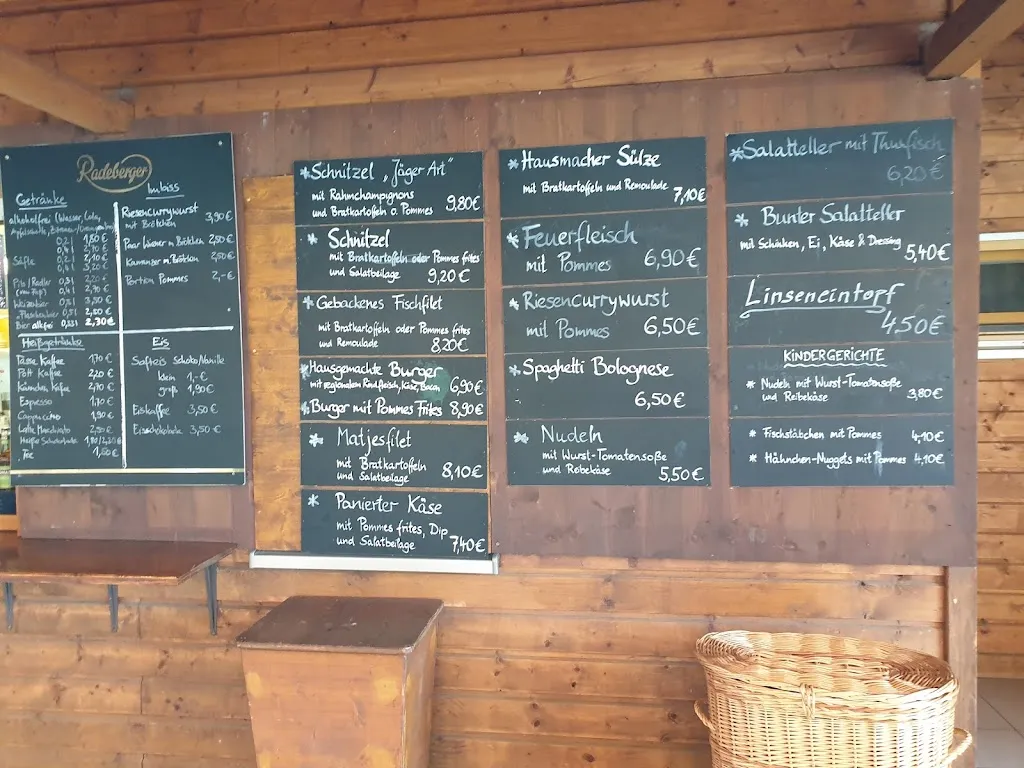 Radeberger
Getränke
alkoholfrei (Wasser, Cola,
0,2 l 1,80 €
0,4 l
Säfte 0,2 l 2,10 €
0,4 l 3,20 €
Pils/Radler 0,3 l 2,20 €
(vom Faß) 0,4 l 2,90 €
Weizenbier 0,5 l 3,50 €
Flaschenbier 0,5 l
Bier alkfrei 0,33 l 2,30 €
Imbiss
Riesencurrywurst 3,90 €
mit Brötchen
Paar Wiener m. Brötchen 2,50 €
Knammer m. Brötchen 2,50 €
Portion Pommes 2,- €
Heißgetränke
Tasse Kaffee 1,70 €
Pott Kaffee 2,20 €
Kännchen Kaffee
Espresso 1,10 €
Cappuccino 1,90 €
Latte Macchiato 2,50 €
Heiße Schokolade
Tee 1,60 €
Eis
Softeis Schoko/Vanille
klein 1,- €
groß 1,90 €
Eiskaffee 3,50 €
Eisschokolade 3,50 €
* Schnitzel „Jäger Art"
mit Rahmchampignons
und Bratkartoffeln o. Pommes 9,80 €
* Schnitzel
mit Bratkartoffeln oder Pommes frites
und Salatbeilage 9,20 €
* Gebackenes Fischfilet
mit Bratkartoffeln oder Pommes frites
und Remoulade 8,20 €
* Hausgemachte Burger
mit regionalem Rindfleisch, Käse, Bacon 6,90 €
* Burger mit Pommes Frites 8,90 €
* Matjesfilet
mit Bratkartoffeln
und Salatbeilage 8,10 €
* Panierter Käse
mit Pommes frites, Dip
und Salatbeilage 7,40 €
* Hausmacher Sülze
mit Bratkartoffeln und Remoulade
7,10 €
* Feuerfleisch
mit Pommes 6,90 €
* Riesencurrywurst
mit Pommes 6,50 €
* Spaghetti Bolognese
6,50 €
* Nudeln
mit Wurst-Tomatensoße
und Reibekäse 5,50 €
* Salatteller mit Thunfisch
6,20 €
* Bunter Salatteller
mit Schinken, Ei, Käse & Dressing
5,40 €
Linseneintopf
4,50 €
KINDERGERICHTE
* Nudeln mit Wurst-Tomatensoße
und Reibekäse 3,80 €
* Fischstäbchen mit Pommes 4,10 €
* Hähnchen-Nuggets mit Pommes 4,10 €